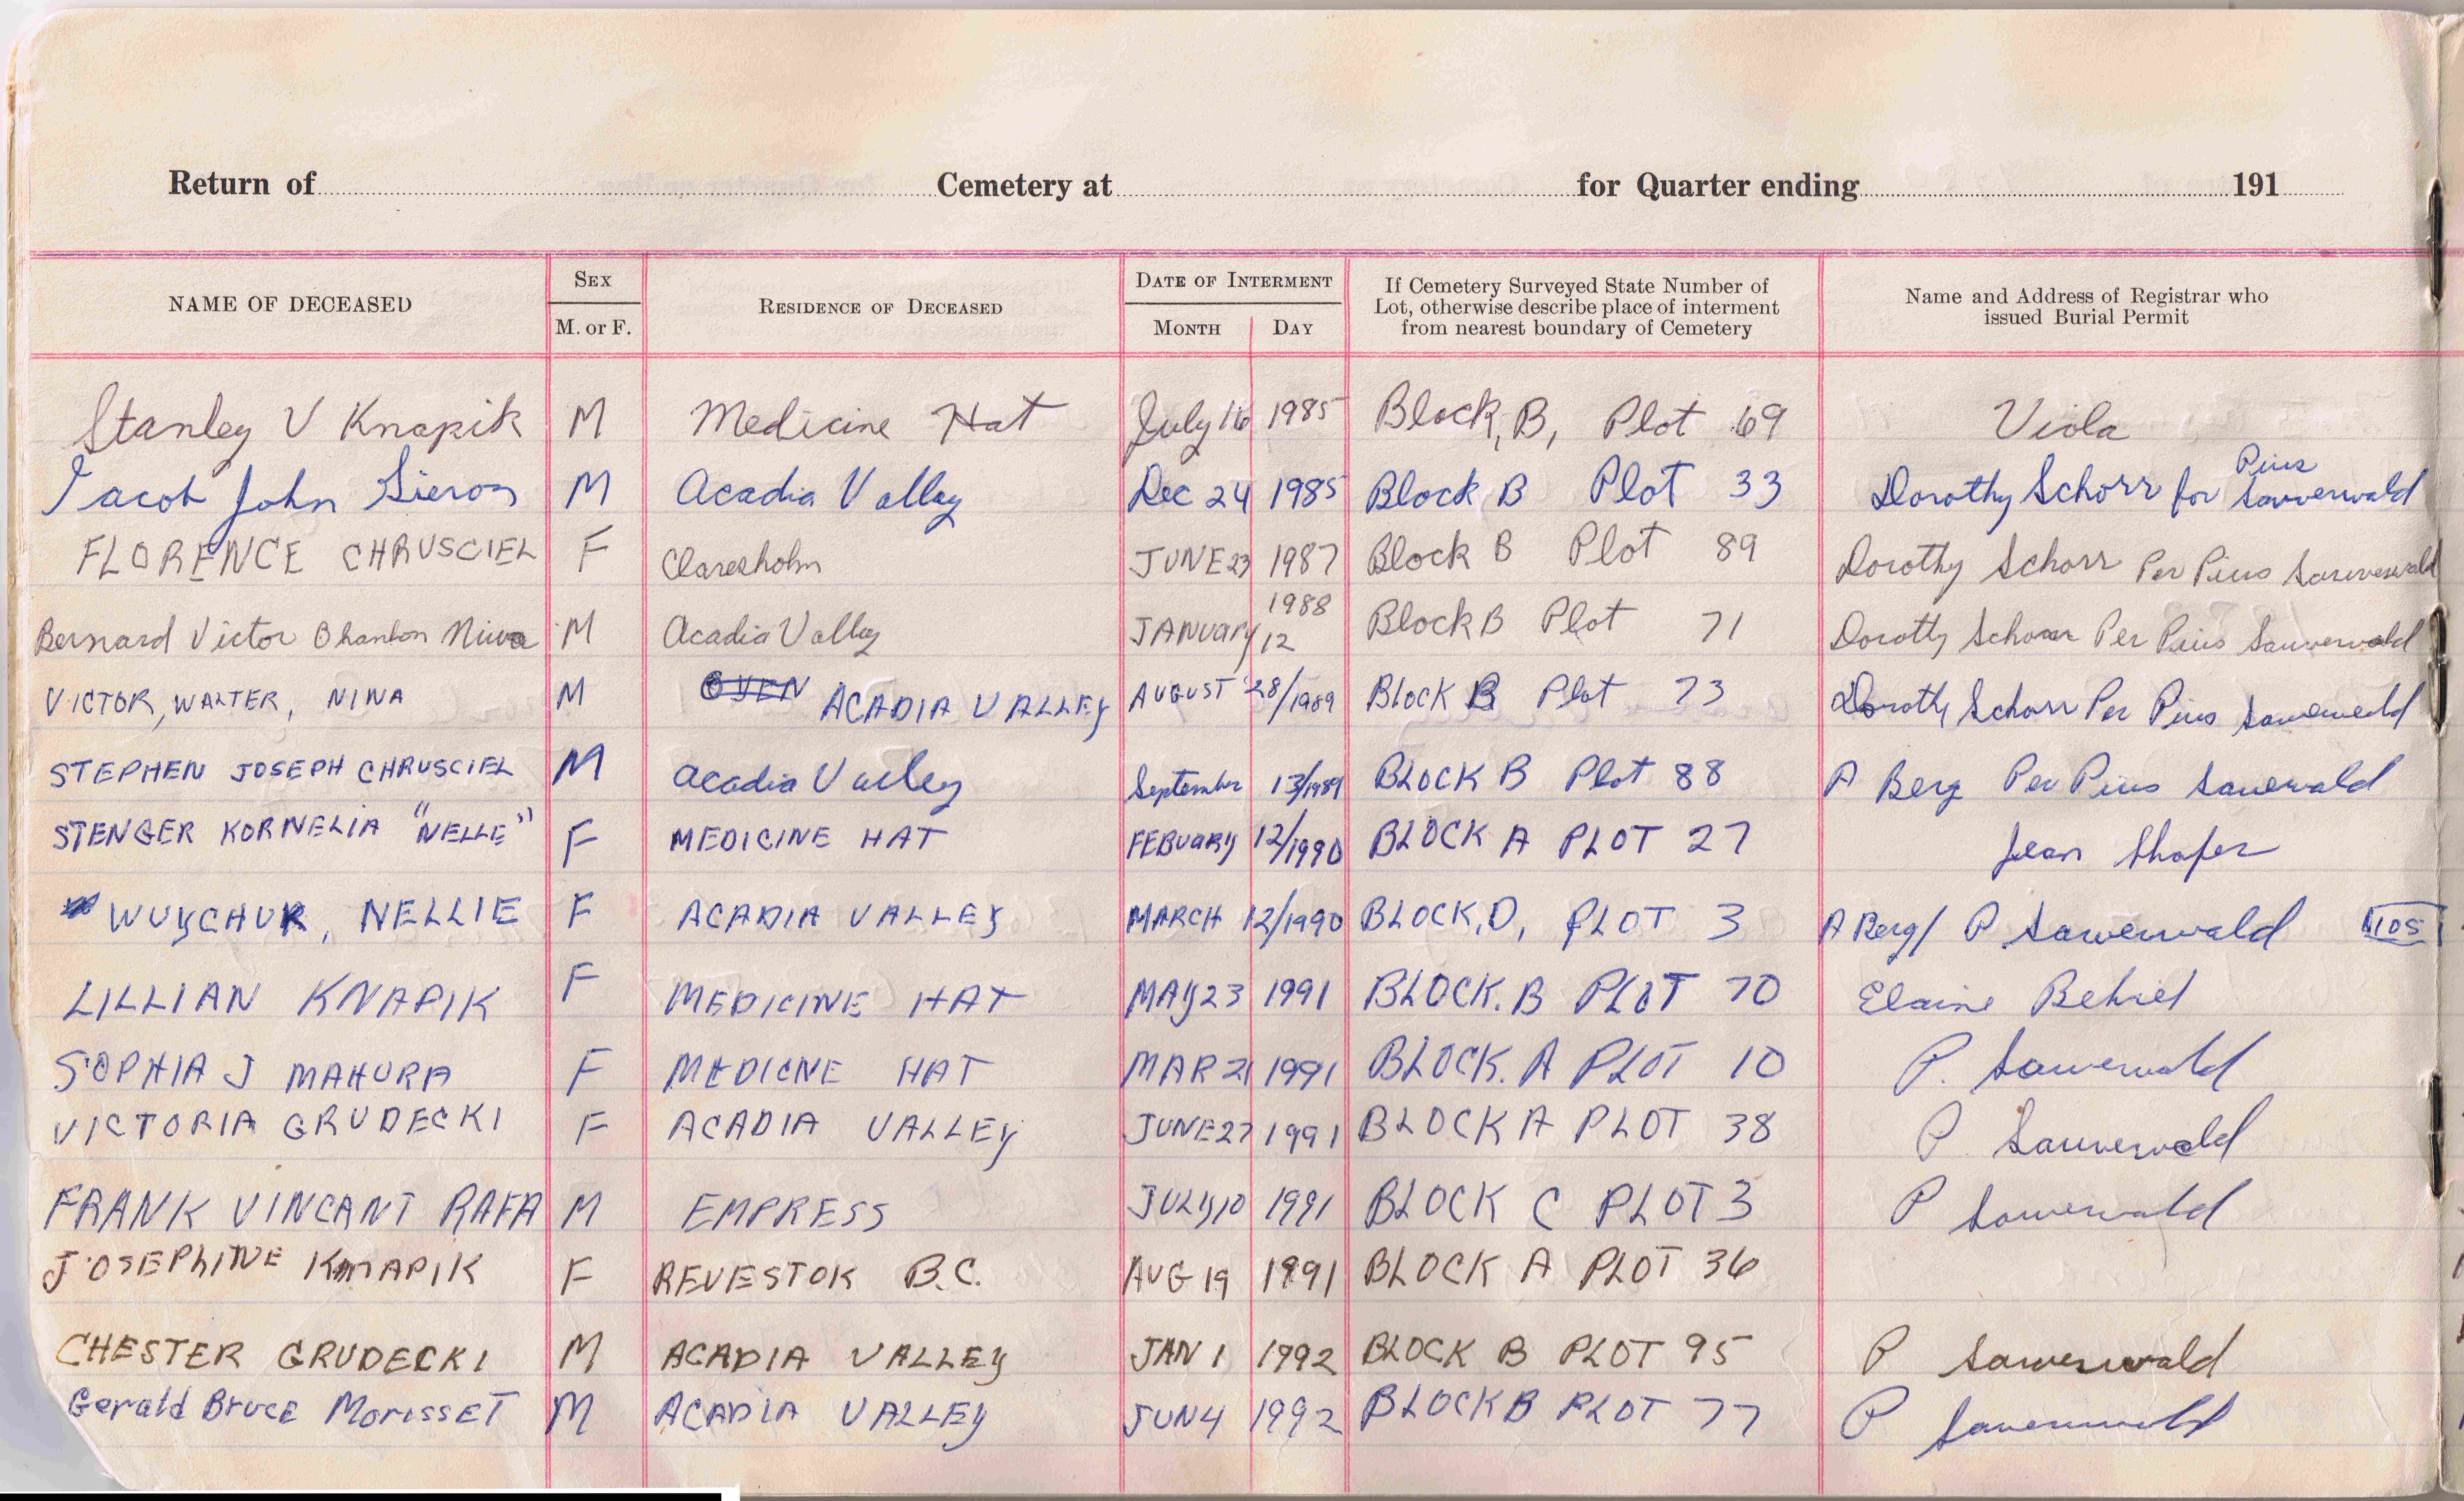 Return of Cemetery at for Quarter ending 191
NAME OF DECEASED SEX M. or F. RESIDENCE OF DECEASED DATE OF INTERMENT MONTH DAY If Cemetery Surveyed State Number of Lot, otherwise describe place of interment from nearest boundary of Cemetery Name and Address of Registrar who issued Burial Permit
Stanley V Knapik M Medicine Hat July 16 1985 Block, B, Plot 69 Viola
Jacob John Sieron M Acadia Valley Dec 24 1985 Block B Plot 33 Dorothy Schorr for Pius Sauverwald
FLORENCE CHRUSCIEL F Claresholm JUNE 23 1987 Block B Plot 89 Dorothy Schorr Per Pius Sauverwald
Bernard Victor Niwa M Acadia Valley JANUARY 12 1988 Block B Plot 71 Dorothy Schorr Per Pius Sauverwald
VICTOR, WALTER, NINA M OYEN ACADIA VALLEY AUGUST 28/1989 BLOCK B Plot 73 Dorothy Schorr Per Pius Sauerwald
STEPHEN JOSEPH CHRUSCIEL M Acadia Valley September 13/1989 BLOCK B Plot 88 A Berg Per Pius Sauerwald
STENGER KORNELIA "NELLE" F MEDICINE HAT FEBUARY 12/1990 BLOCK A PLOT 27 Jean Shafer
WUYCHUK, NELLIE F ACADIA VALLEY MARCH 12/1990 BLOCK, D, PLOT 3 A Berg/ P Sauwerwald 105
LILLIAN KNAPIK F MEDICINE HAT MAY 23 1991 BLOCK. B PLOT 70 Elaine Behiel
SOPHIA J MAHURA F MEDICNE HAT MAR 21 1991 BLOCK. A PLOT 10 P. Sauwerwald
VICTORIA GRUDECKI F ACADIA VALLEY JUNE 27 1991 BLOCK A PLOT 38 P. Sauwerwald
FRANK VINCANT RAFA M EMPRESS JULY 10 1991 BLOCK C PLOT 3 P Sauwerwald
JOSEPHINE KNAPIK F REVESTOK B.C. AUG 19 1991 BLOCK A PLOT 36
CHESTER GRUDECKI M ACADIA VALLEY JAN 1 1992 BLOCK B PLOT 95 P Sauwerwald
Gerald Bruce MorissET M ACADIA VALLEY JUN 4 1992 BLOCK B PLOT 77 P Sauwerwald